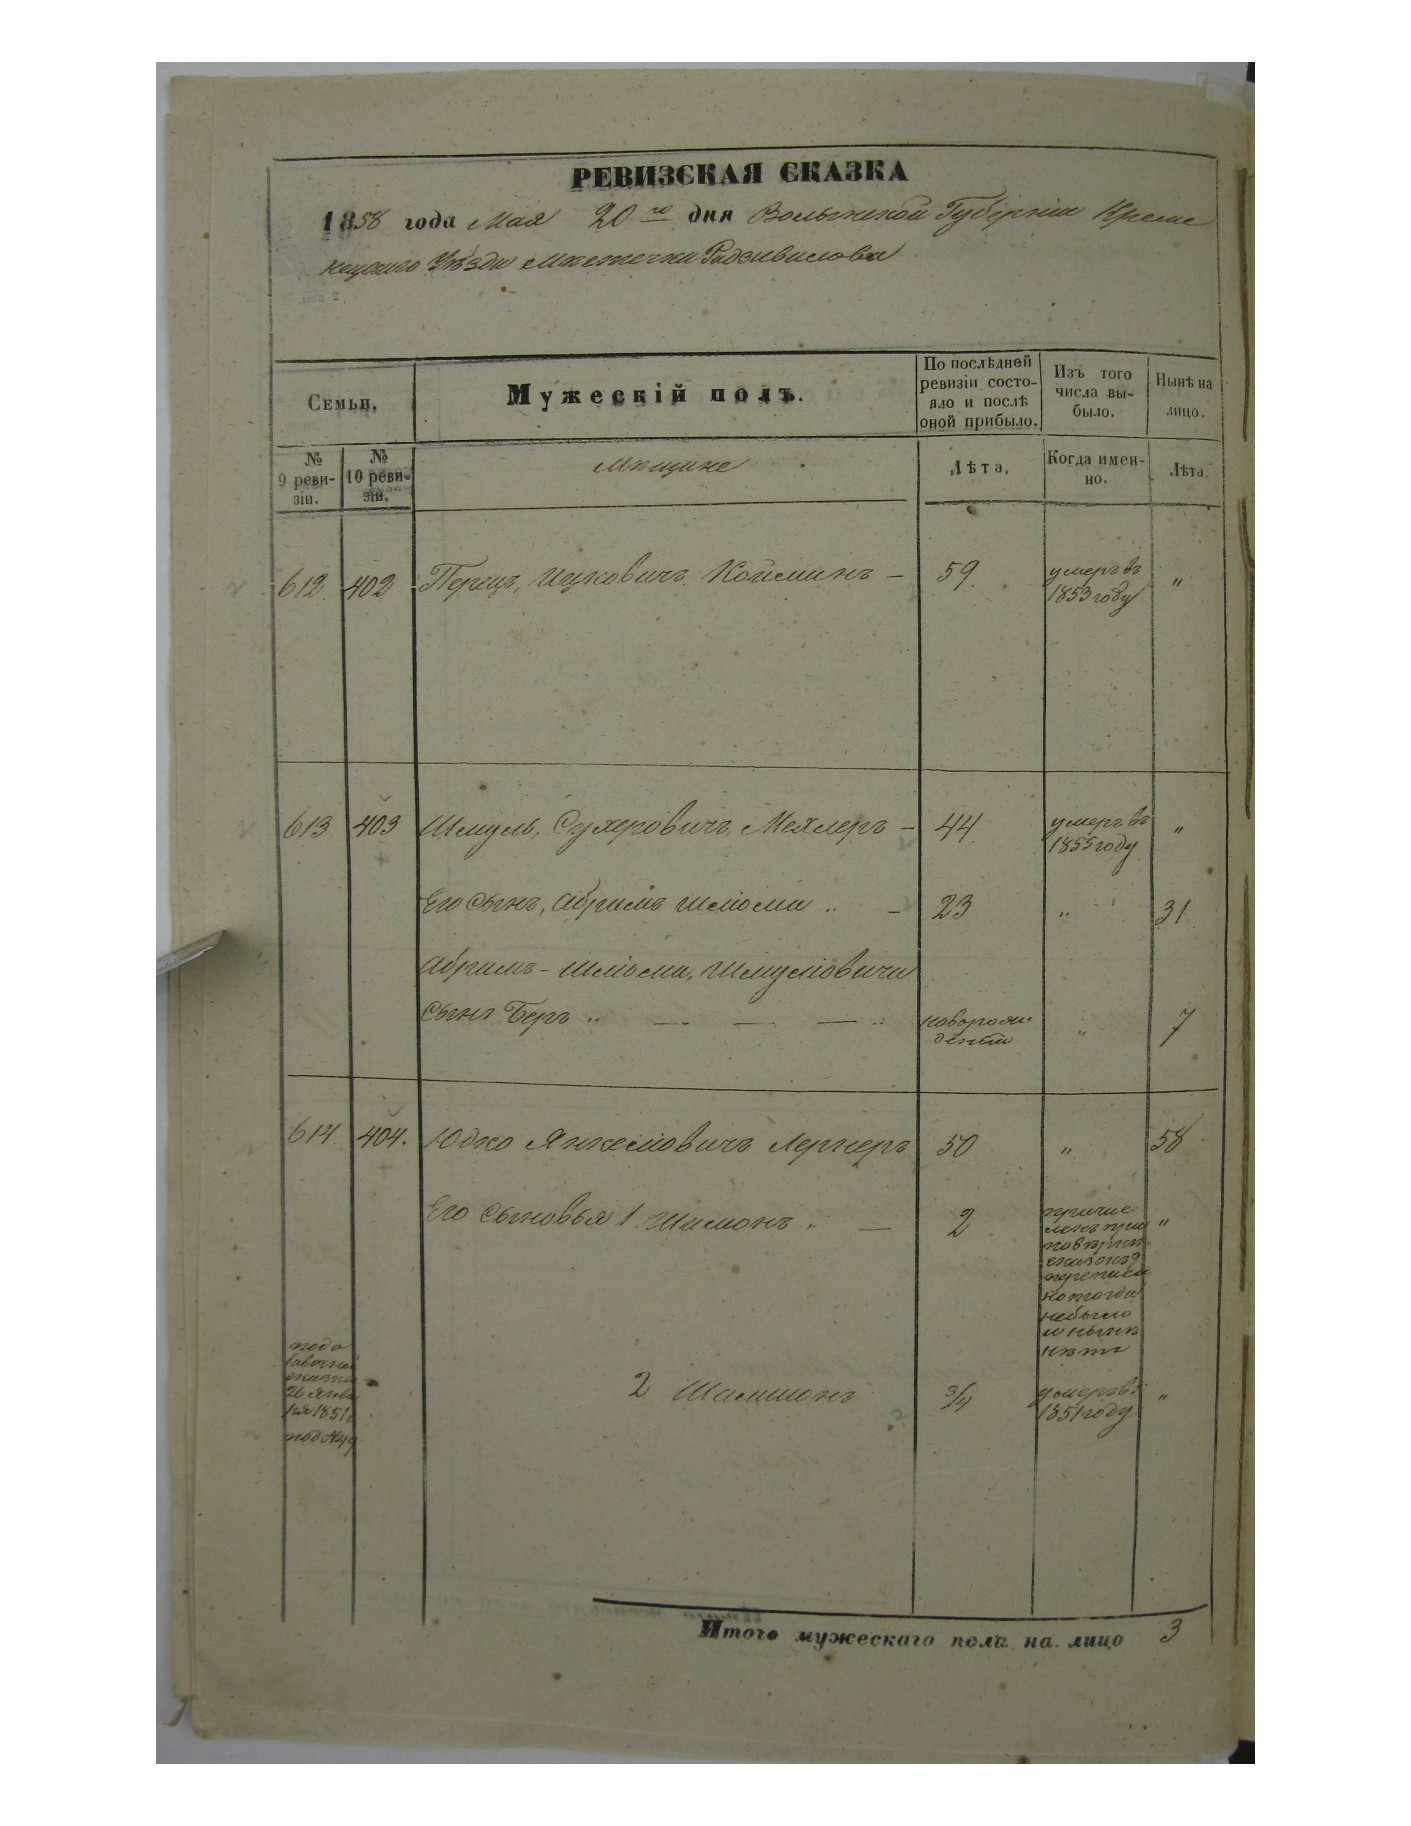 РЕВИЗСКАЯ СКАЗКА
1858 года Мая 20го дня Волынской Губерніи Креме
нецкаго Уѣзда Мѣстечка Радзивилова
Семьи.
Мужескій полъ.
По послѣдней
ревизіи состо-
яло и послѣ
оной прибыло.
Изъ того
числа вы-
было.
Нынѣ на
лицо.
№
9 реви-
зіи.
№
10 реви-
зіи.
Мѣщане
Лѣта.
Когда имен-
но.
Лѣта.
612 402 Перецъ, Ицковичъ Койминъ — 59 умеръ въ "
1853 году
613 403 Шмуль, Сухеровичъ, Мехлеръ — 44 умеръ въ "
1855 году
Его сынъ, Абрамъ Шлюма " — 23 " 31
Абрамъ-Шлюмы, Шмулёвича
Сынъ Беръ " — — — " новорож " 7
денный
614 404. Юдко Янкелёвичъ Лернеръ 50 " 58
Его Сыновья 1. Шимонъ " — 2 "
причис
ленъ при
повѣркѣ
котогда
небыло
и нынѣ
нѣтъ
по до
бавочной
сказкѣ
26 Янва
ря 1851
под № 49
2 Шлимонъ 3/4 умеръ въ "
1851 году
Итого мужескаго пола на лицо 3